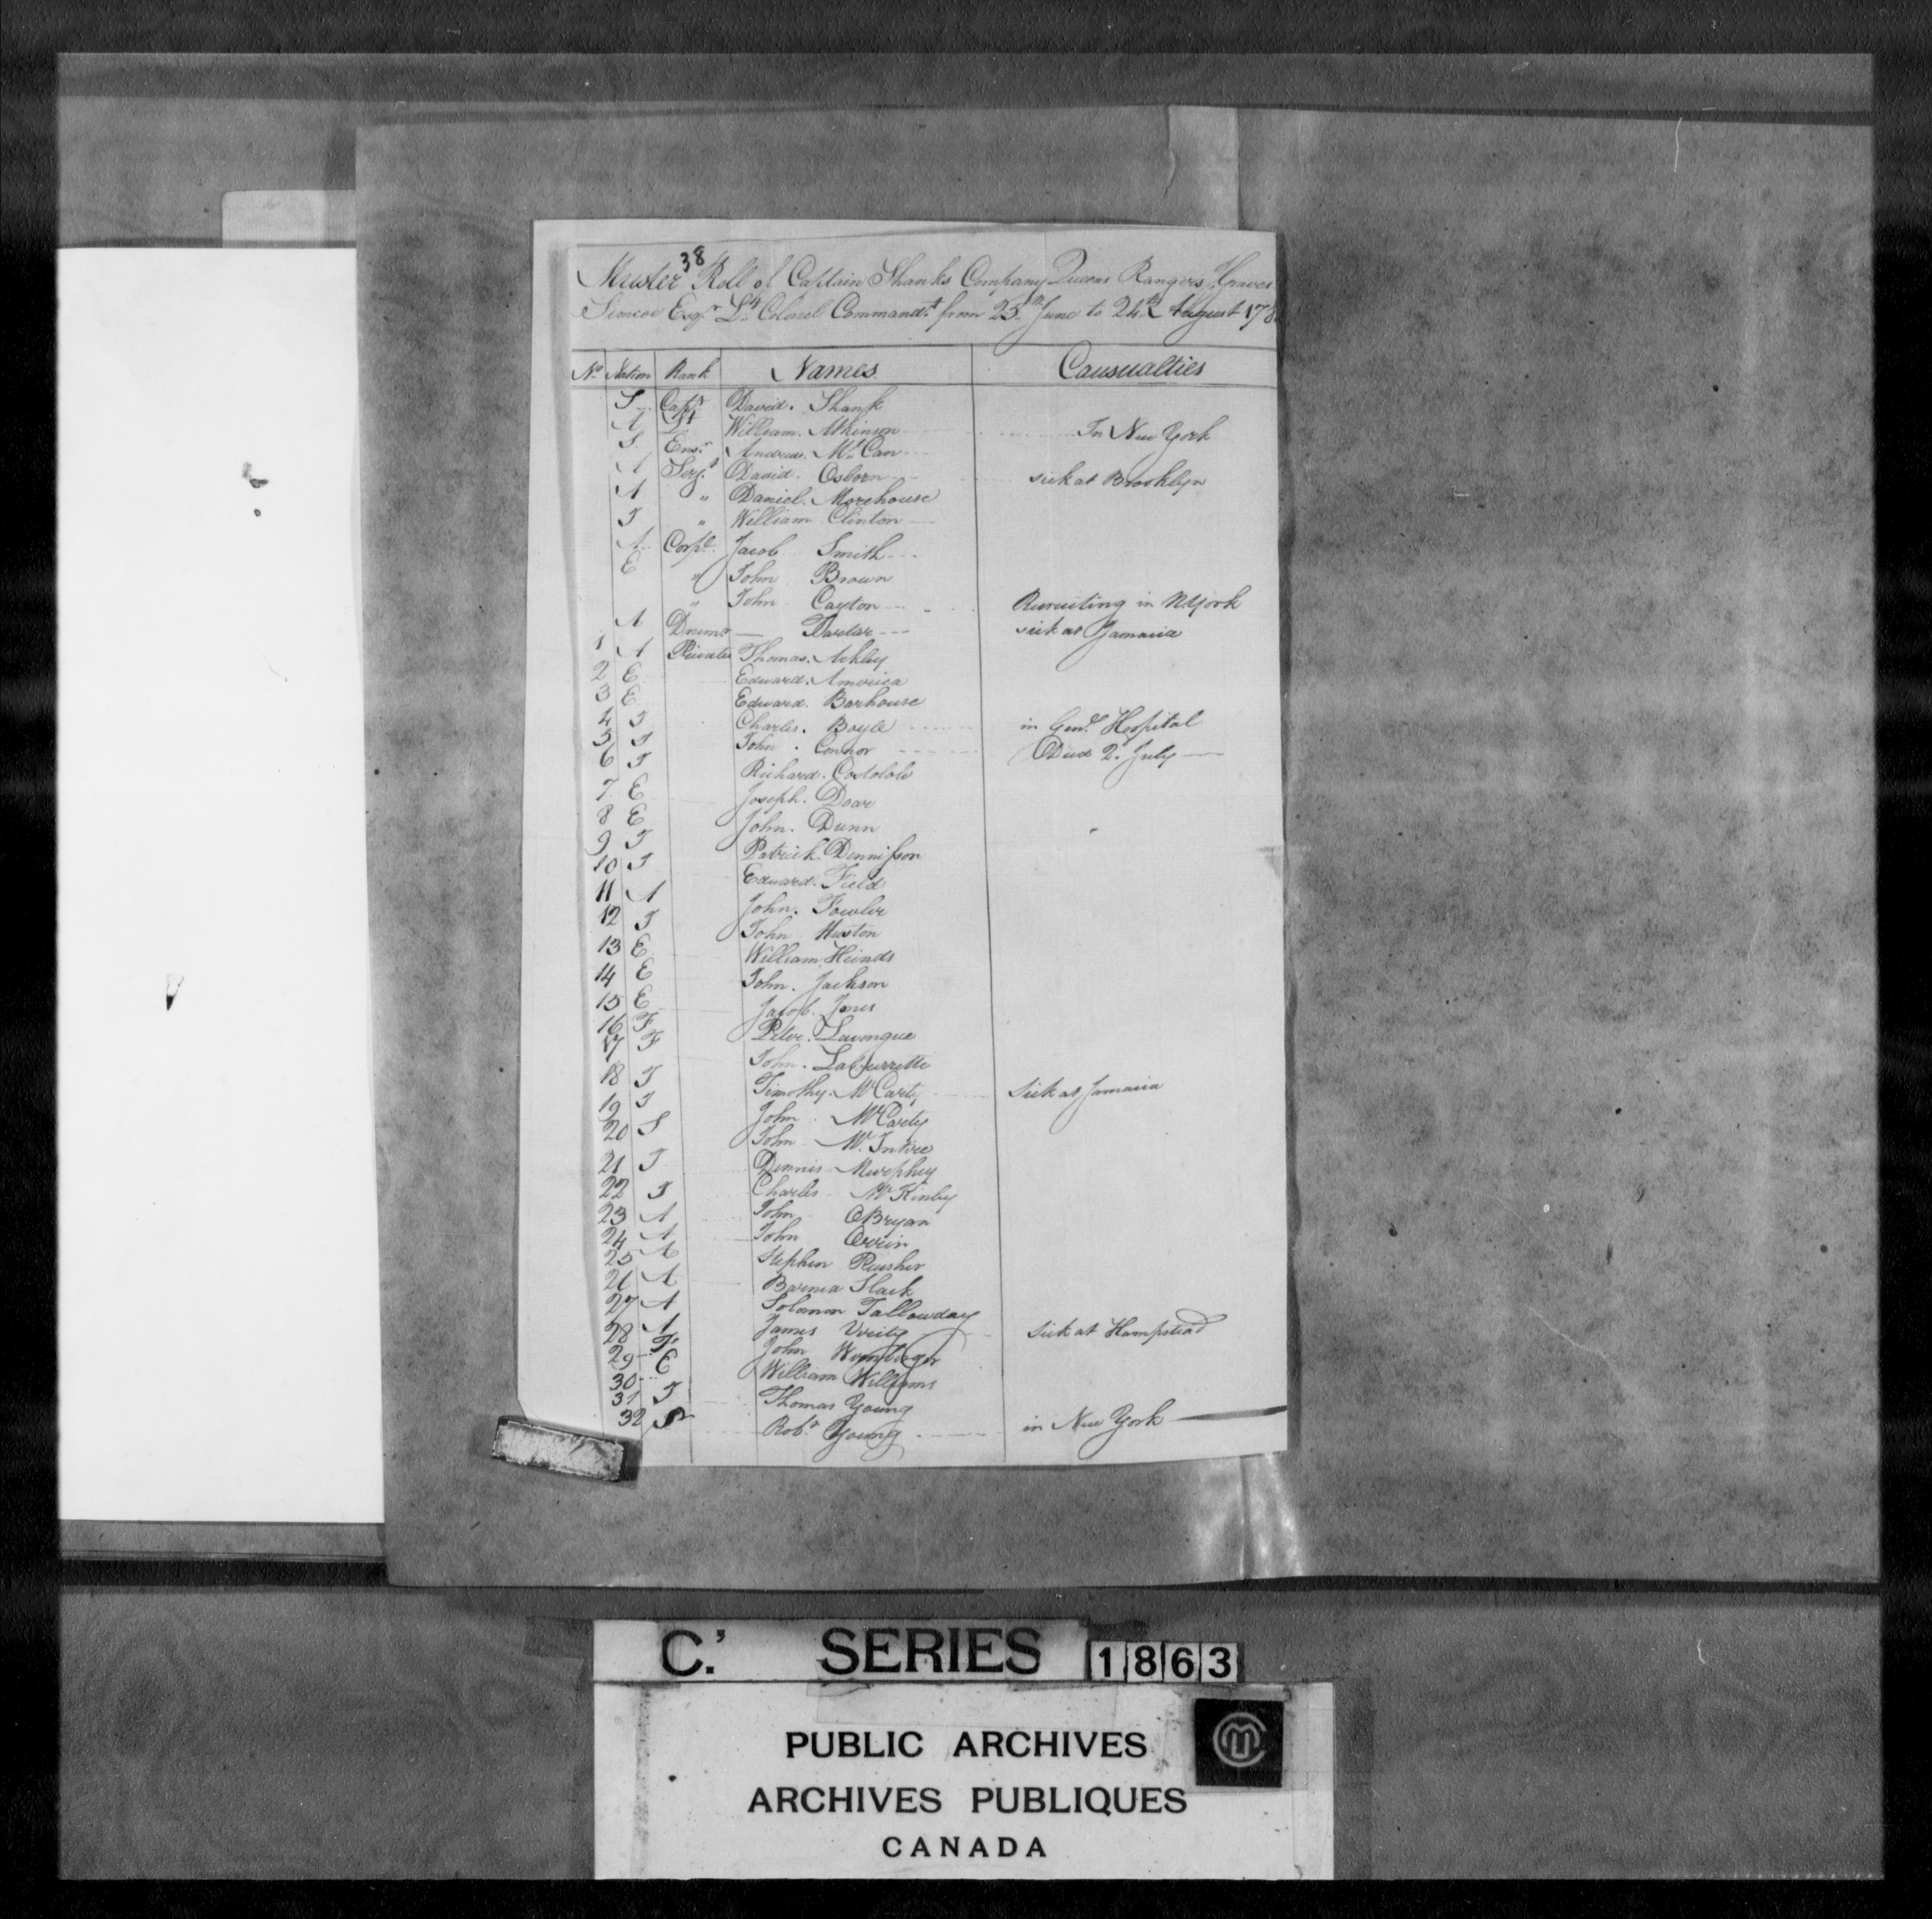 38
Muster Roll of Captain Shanks Company Queens Rangers, Graves
Simcoe Esqr Lt Colonel Commandt from 25th June to 24th August 178
No Nation Rank Names Causualties
S Captn David. Shank
A Lt William. Atkinson In New York
S Ensn Andrew. Mc Can
A Serjt David. Osborn sick at Brooklyn
A " Daniel. Morehouse
I " William Clinton
A Corpl Jacob Smith
E " John Brown
" John Cayton Recruiting in N York
A Drumr — sick at Jamaica
1 A Privates Thomas. Ashley
2 E Edward. America
3 E Edward. Barhouse
4 I Charles. Boyle in Genl Hospital
5 I John. Connor Died 2d July
6 I Richard. Costolole
7 E Joseph. Dove
8 E John. Dunn
9 I Patrick. Dennisson
10 I Edward. Field
11 A John. Fowler
12 I John Huston
13 E William Hinds
14 E John. Jackson
15 E Jacob. Jones
16 F Peter. Lavongue
17 F John.
18 I Timothy. McCarty Sick at Jamaica
19 I John. McCarty
20 S John McIntire
21 I Dennis Murphey
22 I Charles McKinley
23 A John OBryan
24 A John Orrin
25 A Stephen
26 A Barnea Slack
27 A Solomon Tallowday
28 A James Verity Sick at Hampstead
29 F John
30 E William Williams
31 I Thomas Young
32 S Robt Young in New York
C. SERIES 1863
PUBLIC ARCHIVES
ARCHIVES PUBLIQUES
CANADA